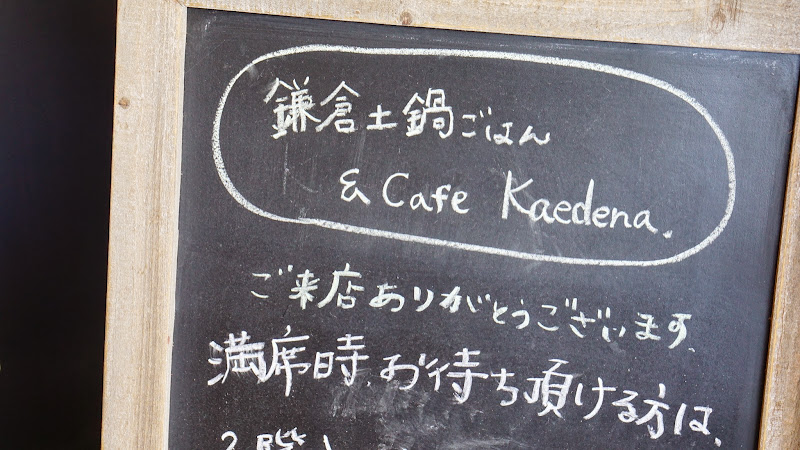 鎌倉土鍋ごはん
& Cafe Kaedena.
ご来店ありがとうございます。
満席時、お待ち頂ける方は、